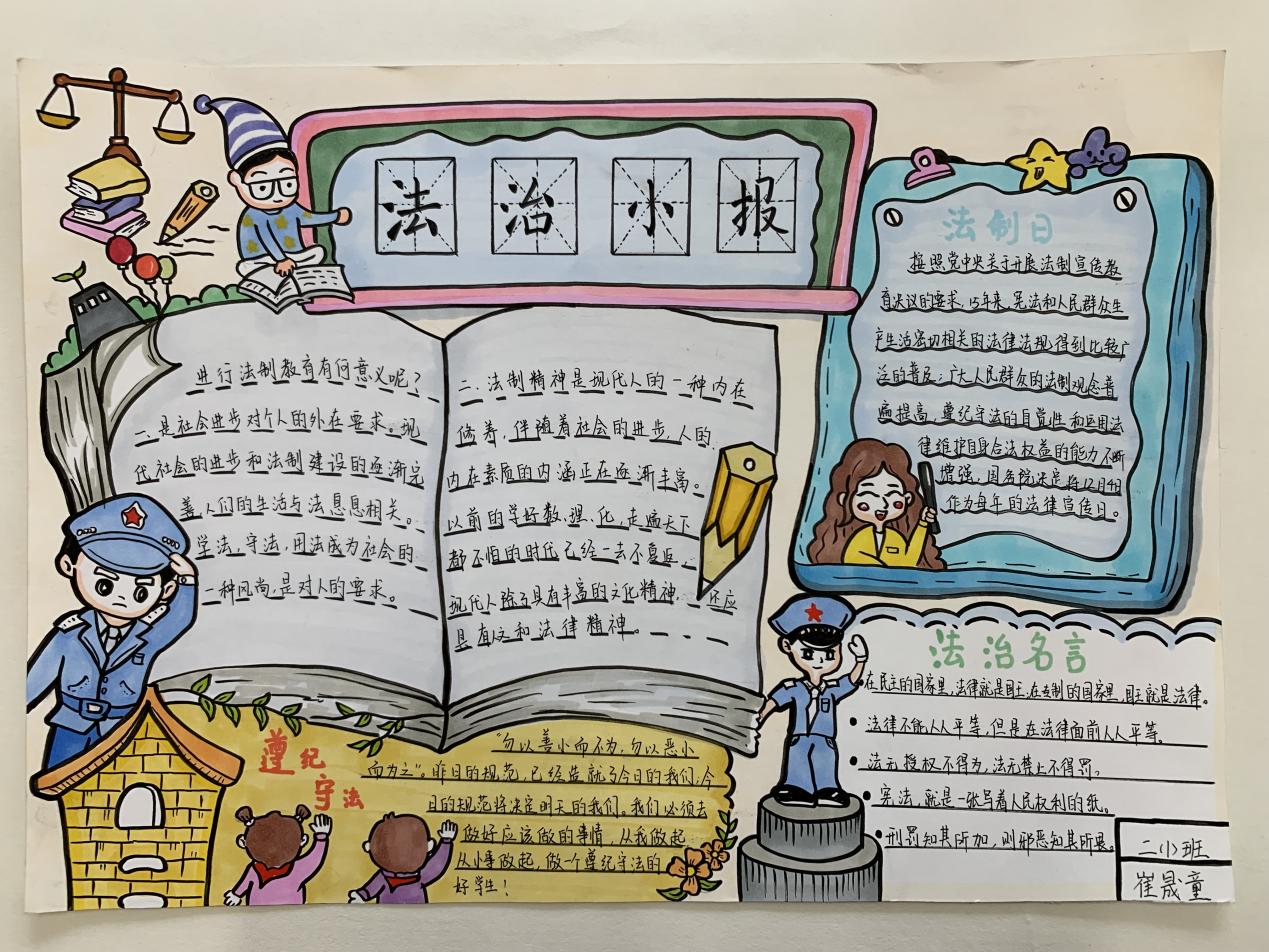 法治小报
进行法制教育有何意义呢?
一.是社会进步对个人的外在要求。现
代社会的进步和法制建设的逐渐完
善,人们的生活与法息息相关。
学法,守法,用法成为社会的
一种风尚,是对人的要求。
二.法制精神是现代人的一种内在
修养,伴随着社会的进步,人的
内在素质的内涵正在逐渐丰富。
以前的学好数.理.化,走遍天下
都不怕的时代已经一去不复返,
现代人除了具有丰富的文化精神,还应
具有人文和法律精神。
法制日
按照党中央关于开展法制宣传教
育决议的要求,15年来,宪法和人民群众生
产生活密切相关的法律法规得到比较广
泛的普及;广大人民群众的法制观念普
遍提高,遵纪守法的自觉性和运用法
律维护自身合法权益的能力不断
增强,国务院决定将12月4日
作为每年的法律宣传日。
遵纪
守法
“勿以善小而不为,勿以恶小
而为之”。昨日的规范,已经造就了今日的我们;今
日的规范将决定明天的我们。我们必须去
做好应该做的事情,从我做起
从小事做起,做一个遵纪守法的
好学生!
法治名言
•在民主的国家里,法律就是国王;在专制的国家里,国王就是法律。
•法律不能人人平等,但是在法律面前人人平等。
•法无授权不得为,法无禁止不得罚。
•宪法,就是一张写着人民权利的纸。
•刑罚知其所加,则邪恶知其所畏。
二小班
崔晟童